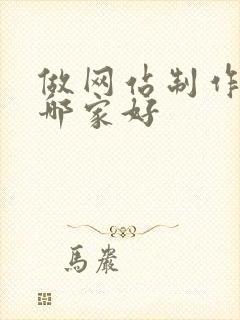 做网估制作
哪家好
馬嚴